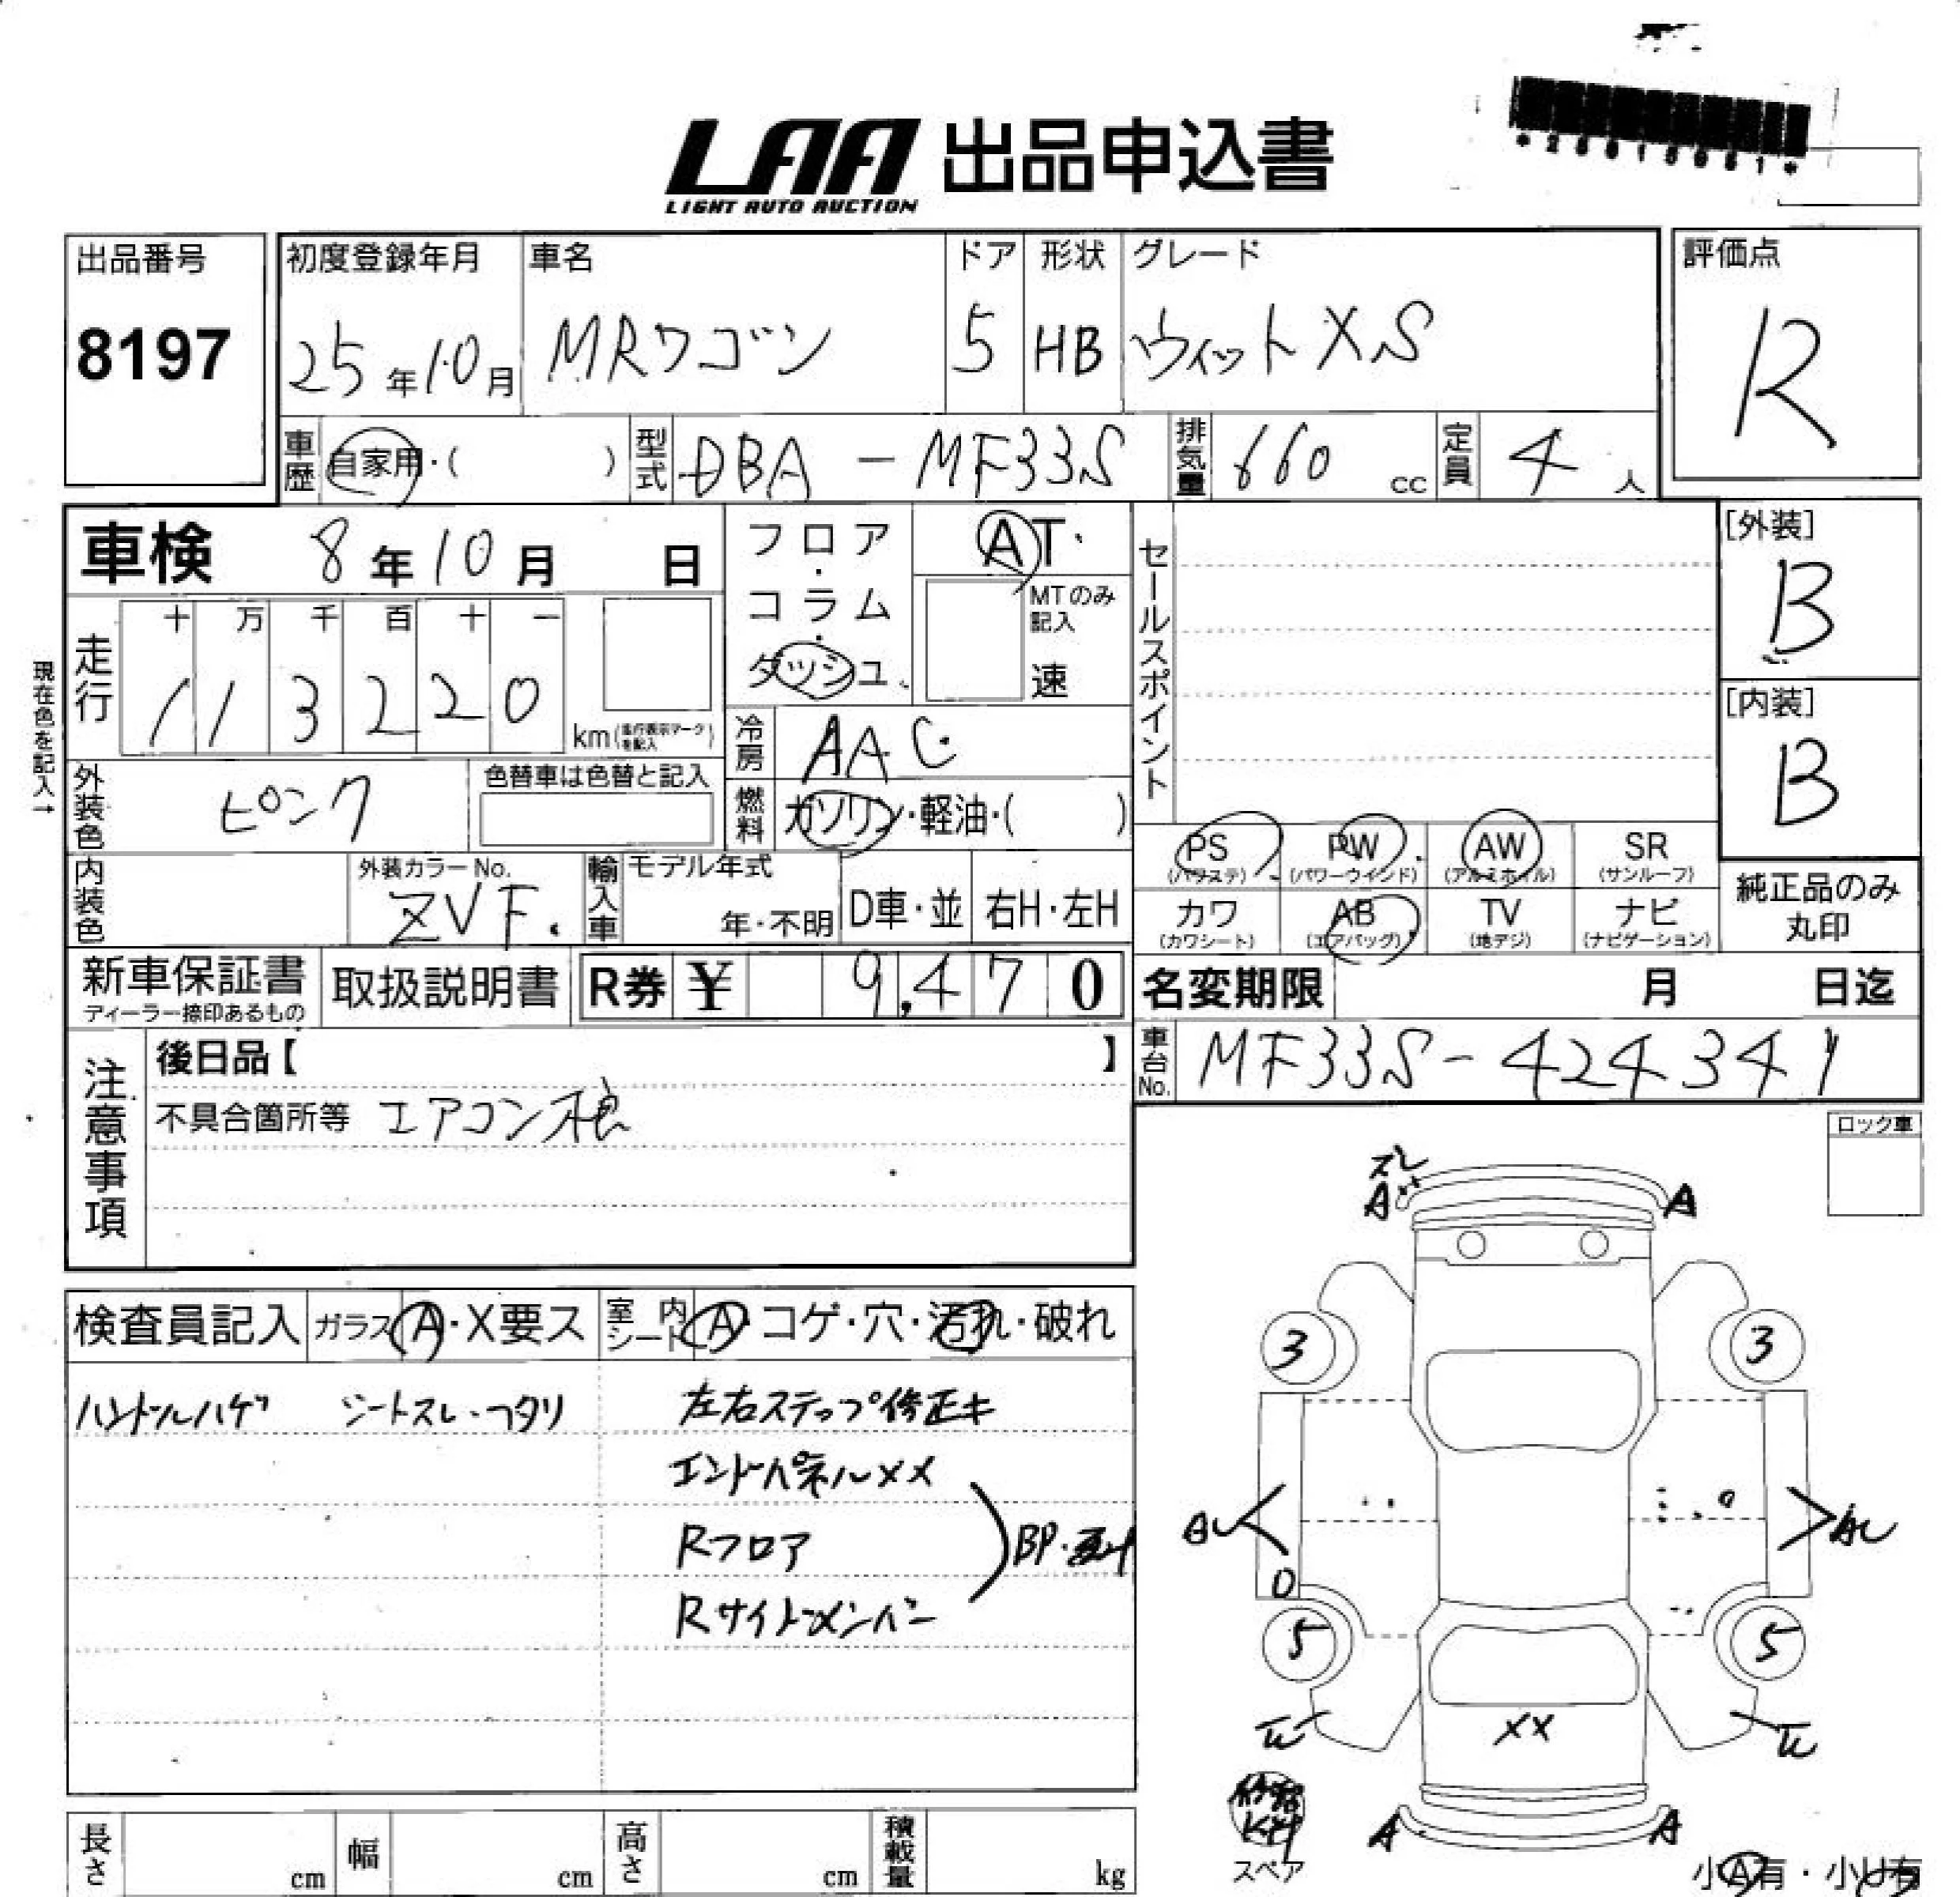 *26015061*
LAA 出品申込書
LIGHT AUTO AUCTION
出品番号 初度登録年月 車名 ドア 形状 グレード 評価点
8197 25年10月 MRワゴン 5 HB ウィットXS R
車歴 自家用・( ) 型式 DBA-MF33S 排気量 660 cc 定員 4 人
車検 8年10月 日
フロア・コラム・ダッシュ
AT・
MTのみ記入
速
セールスポイント
[外装]
B
[内装]
B
現在色を記入→
走行 十 万 千 百 十 一
113220 km(走行表示マークを記入)
冷房 AAC
外装色 ピンク 色替車は色替と記入
燃料 ガソリン・軽油・( )
PS (パワステ) PW (パワーウインド) AW (アルミホイル) SR (サンルーフ)
カワ (カワシート) AB (エアバッグ) TV (地デジ) ナビ (ナビゲーション)
純正品のみ丸印
内装色 外装カラーNo. ZVF. 輸入車 モデル年式 年・不明 D車・並 右H・左H
新車保証書 ディーラー捺印あるもの 取扱説明書 R券 ¥ 9,470
名変期限 月 日迄
車台No. MF33S-424341
注意事項
後日品【 】
不具合箇所等 エアコン検
ロック車
検査員記入 ガラス A・X要ス 室内シート A・コゲ・穴・汚れ・破れ
ハンドルハゲ シートスレ・ヘタリ 左右ステップ修正キ
エンドパネルXX
Rフロア
Rサイドメンバー
BP・
ズレ
A A
3 3
AU AU
D
5 5
XX
A A
スペア
小A有・小U有
長さ cm 幅 cm 高さ cm 積載量 kg